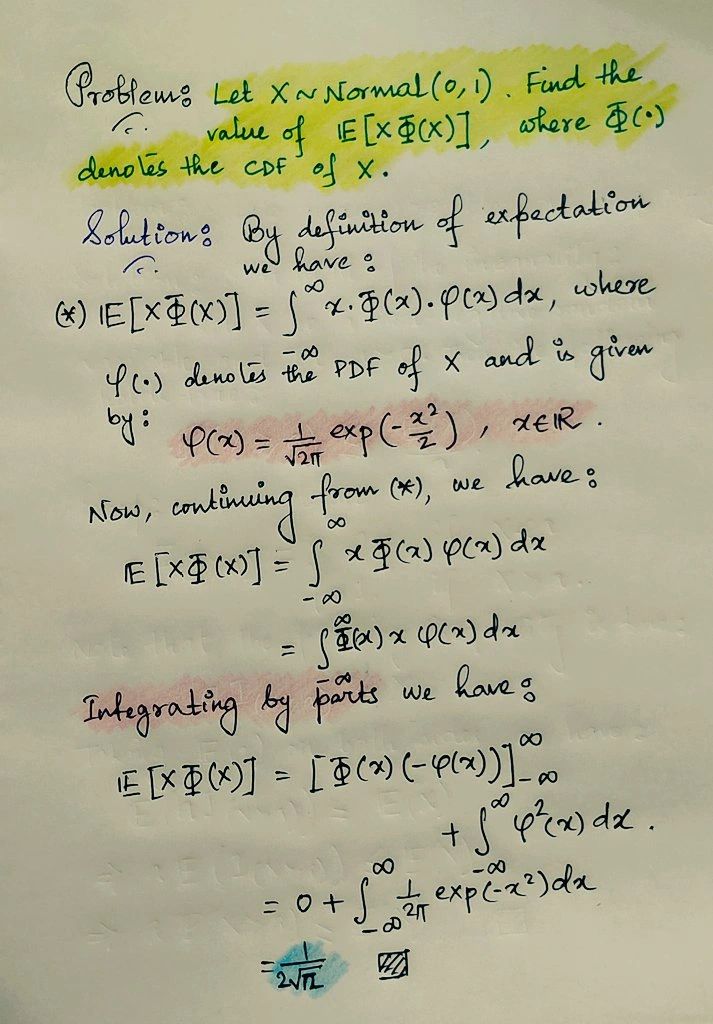 Problem: Let X ~ Normal(0,1). Find the
value of 𝔼[XΦ(X)], where Φ(•)
denotes the CDF of X.
Solution: By definition of expectation
we have:
(*) 𝔼[XΦ(X)] = ∫_{-∞}^{∞} x.Φ(x).φ(x)dx, where
φ(•) denotes the PDF of X and is given
by: φ(x) = 1/√2π exp(-x²/2), x∈ℝ.
Now, continuing from (*), we have:
𝔼[XΦ(X)] = ∫_{-∞}^{∞} xΦ(x)φ(x)dx
= ∫_{-∞}^{∞} Φ(x)xφ(x)dx
Integrating by parts we have:
𝔼[XΦ(X)] = [Φ(x)(-φ(x))]_{-∞}^{∞}
+ ∫_{-∞}^{∞} φ²(x)dx.
= 0 + ∫_{-∞}^{∞} 1/2π exp(-x²)dx
= 1/2√π